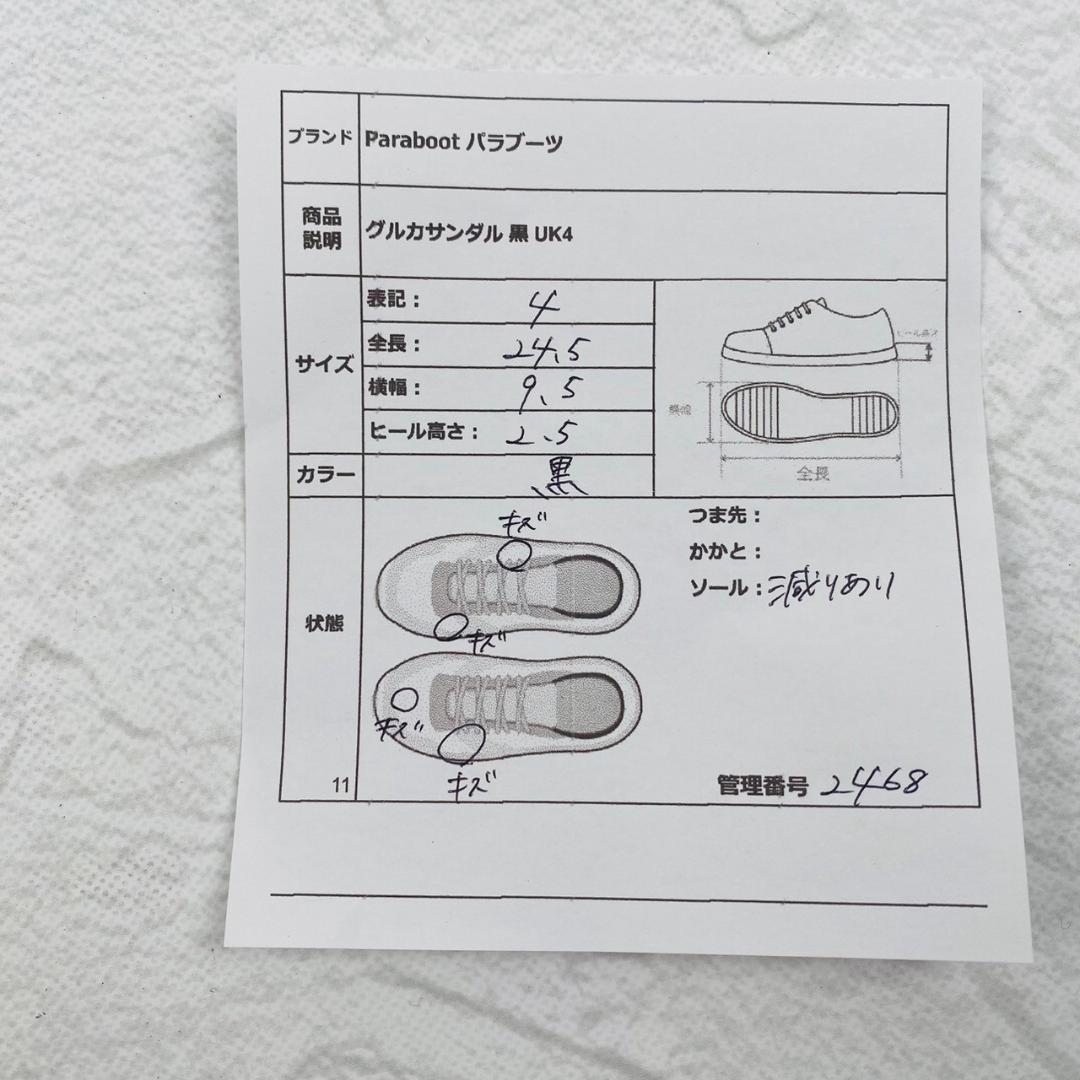 ブランド Paraboot パラブーツ
商品説明 グルカサンダル 黒 UK4
サイズ
表記： 4
全長： 24.5
横幅： 9.5
ヒール高さ： 2.5
ヒール高さ
横幅
全長
カラー 黒
状態
キズ
キズ
キズ
キズ
つま先：
かかと：
ソール：減りあり
11
管理番号 2468